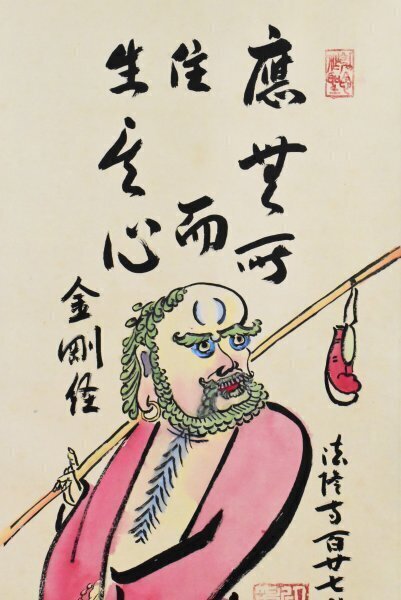 應無所
住而
生其心
金剛経
法隆寺百廿七